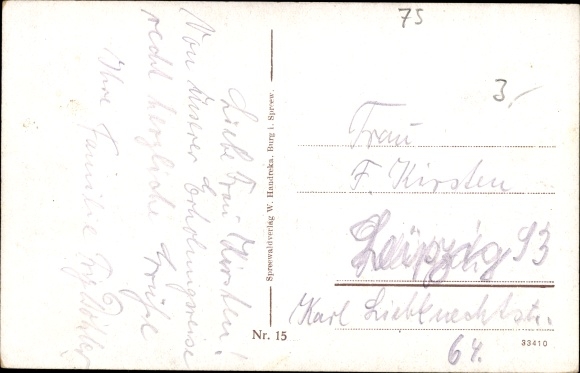 Liebe Frau Kirsten!
Von unserer Erholungsreise
recht herzliche Grüße
Ihre Familie
Spreewaldverlag W. Handreka, Burg i. Spreew.
75
3.-
Frau
F. Kirsten
Leipzig S3
Karl Liebknechtstr.
64.
Nr. 15
33410